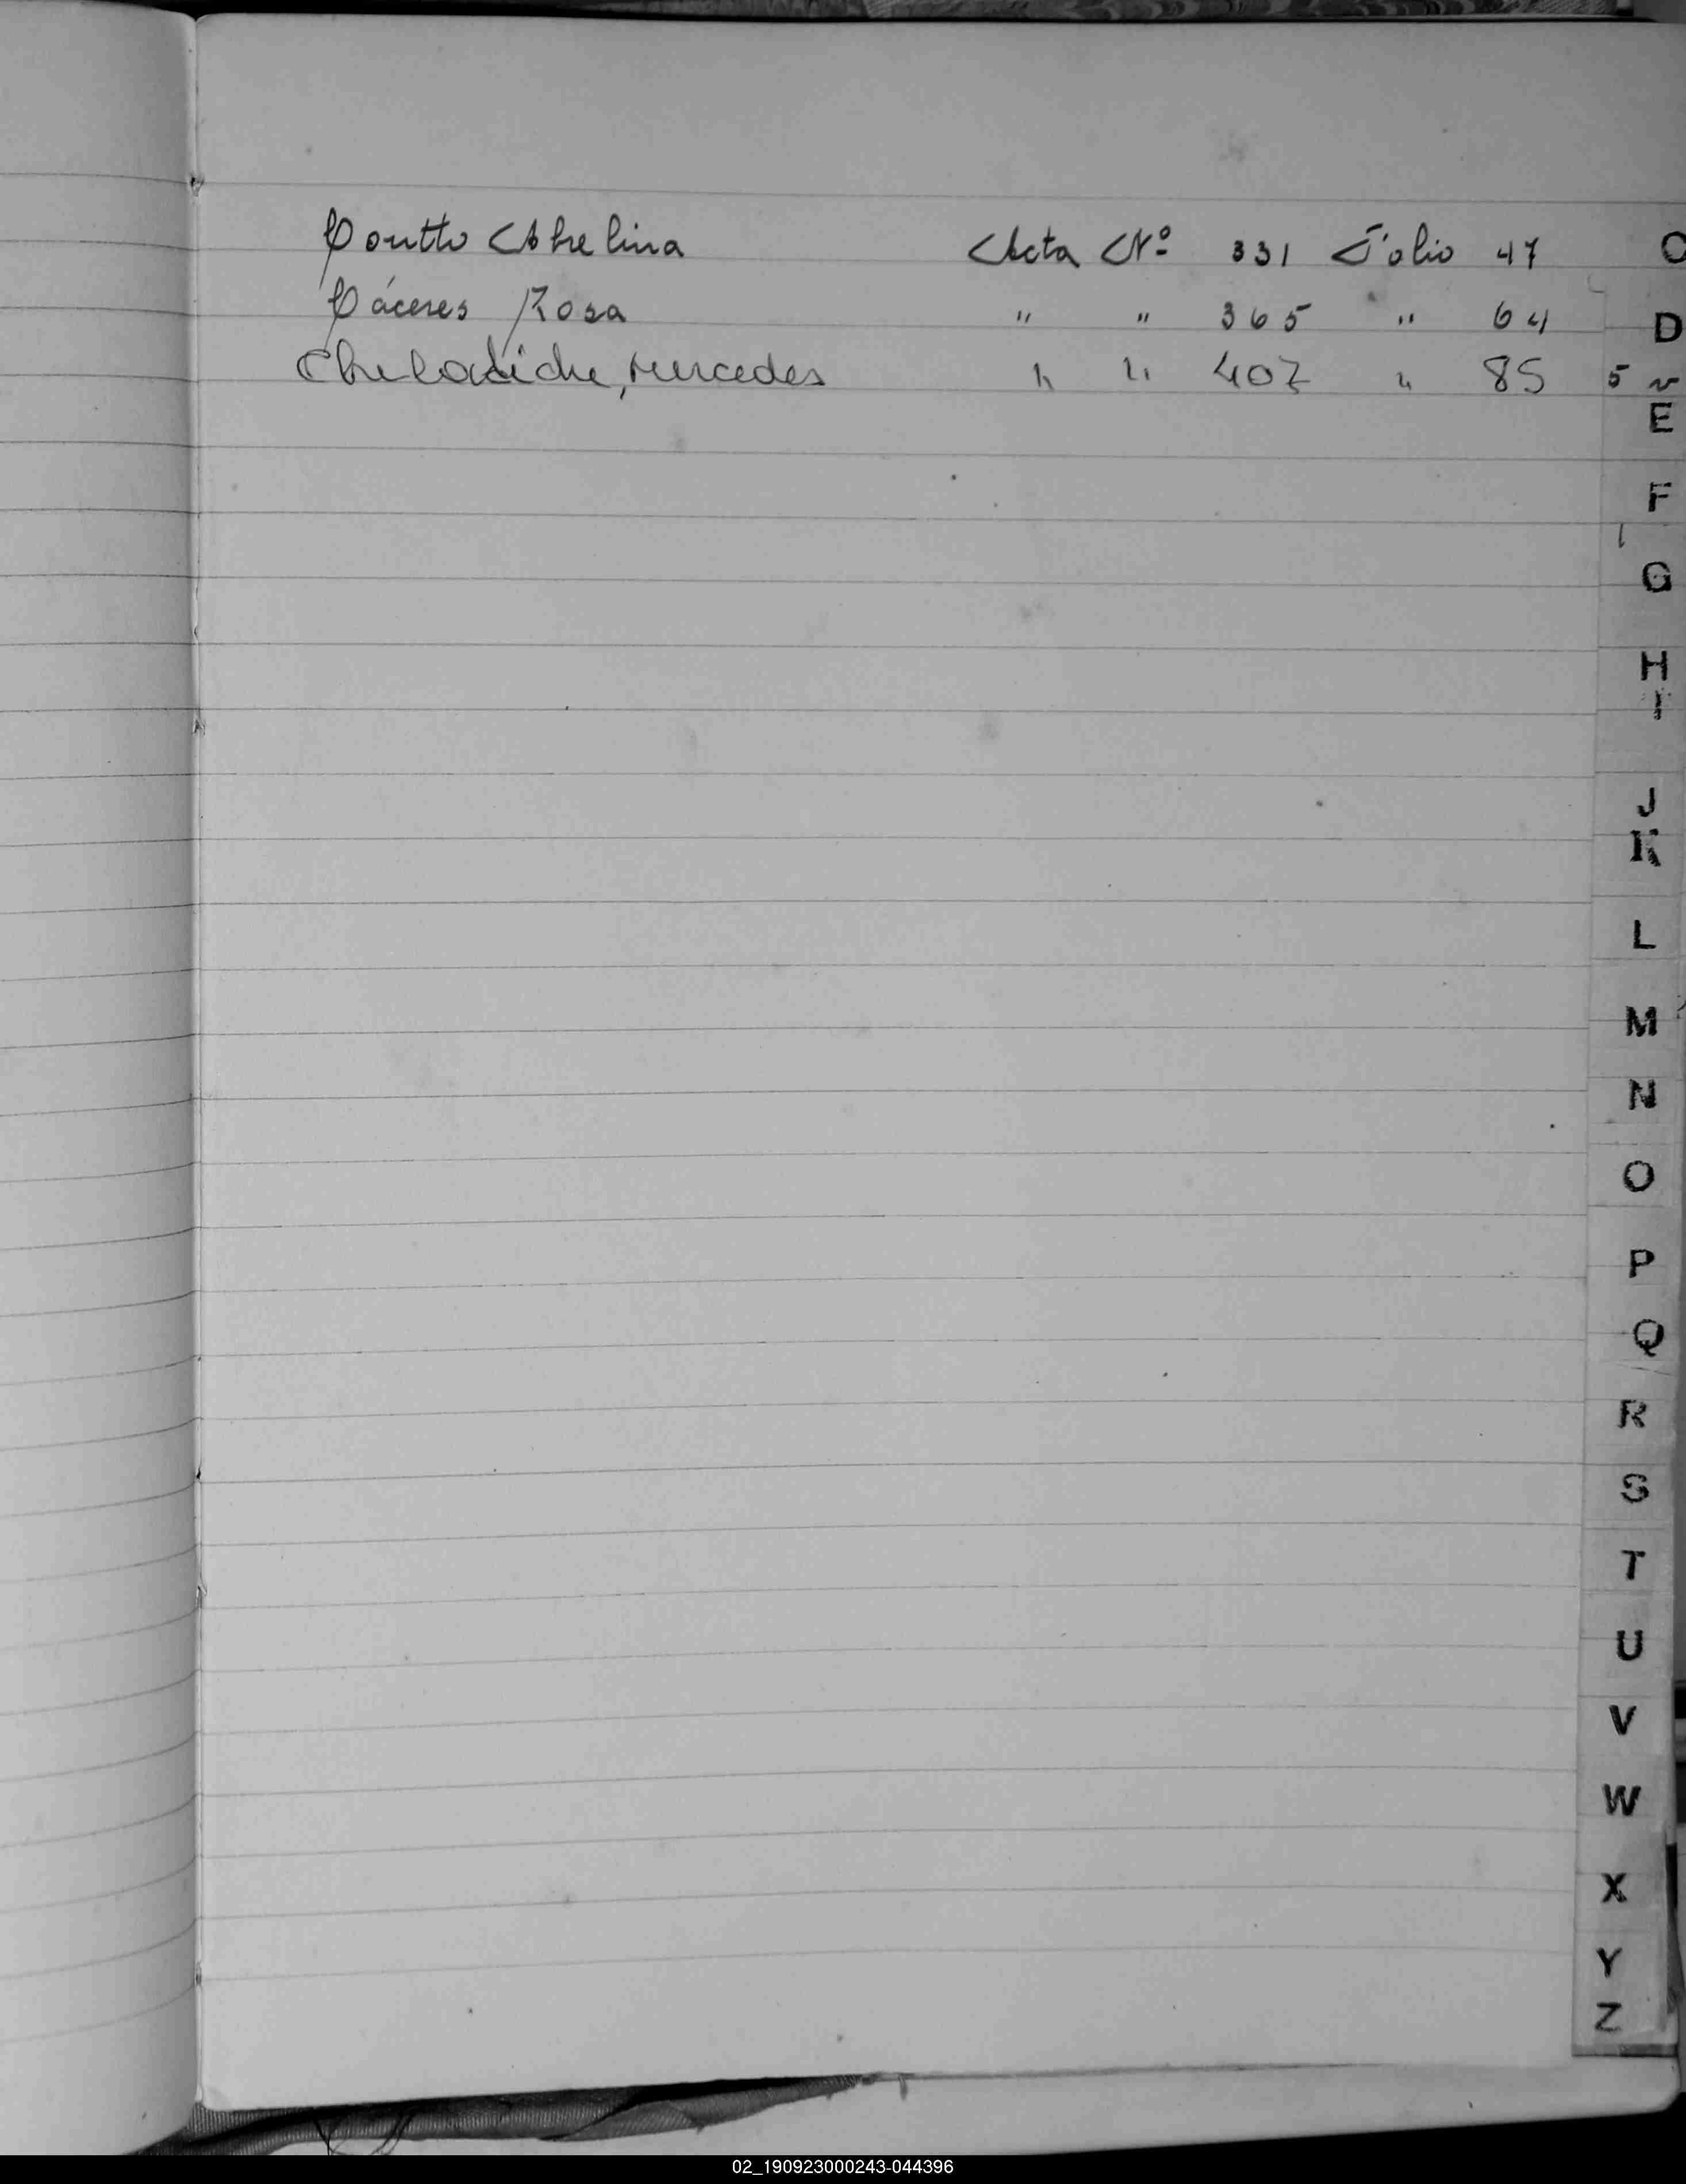 Coutto Abelina Acta Nº 331 Folio 47 C
Cáceres Rosa " " 365 " 64 D
Mercedes " " 407 " 85 5
E
F
G
H
I
J
K
L
M
N
O
P
Q
R
S
T
U
V
W
X
Y
Z
02_190923000243-044396